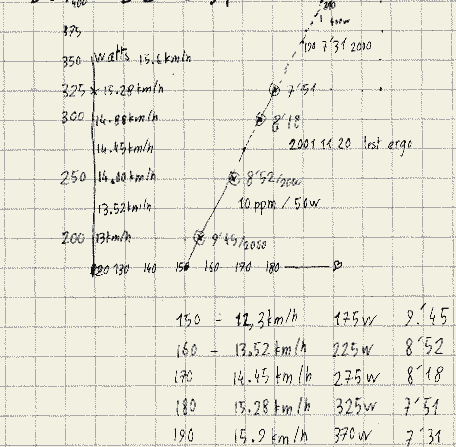 375
400w
190 7'31 2000
350 Watts 15.6 km/h
325 15.28 km/h 7'51
300 14.88 km/h 8'18
14.45 km/h 2001 11 20 test ergo
250 14.00 km/h 8'52/2000
13.52 km/h 10 ppm / 50w
200 13 km/h 9'45/2000
120 130 140 150 160 170 180
150 - 12,3 km/h 175w 9'45
160 - 13.52 km/h 225w 8'52
170 14.45 km/h 275w 8'18
180 15.28 km/h 325w 7'51
190 15.9 km/h 370w 7'31